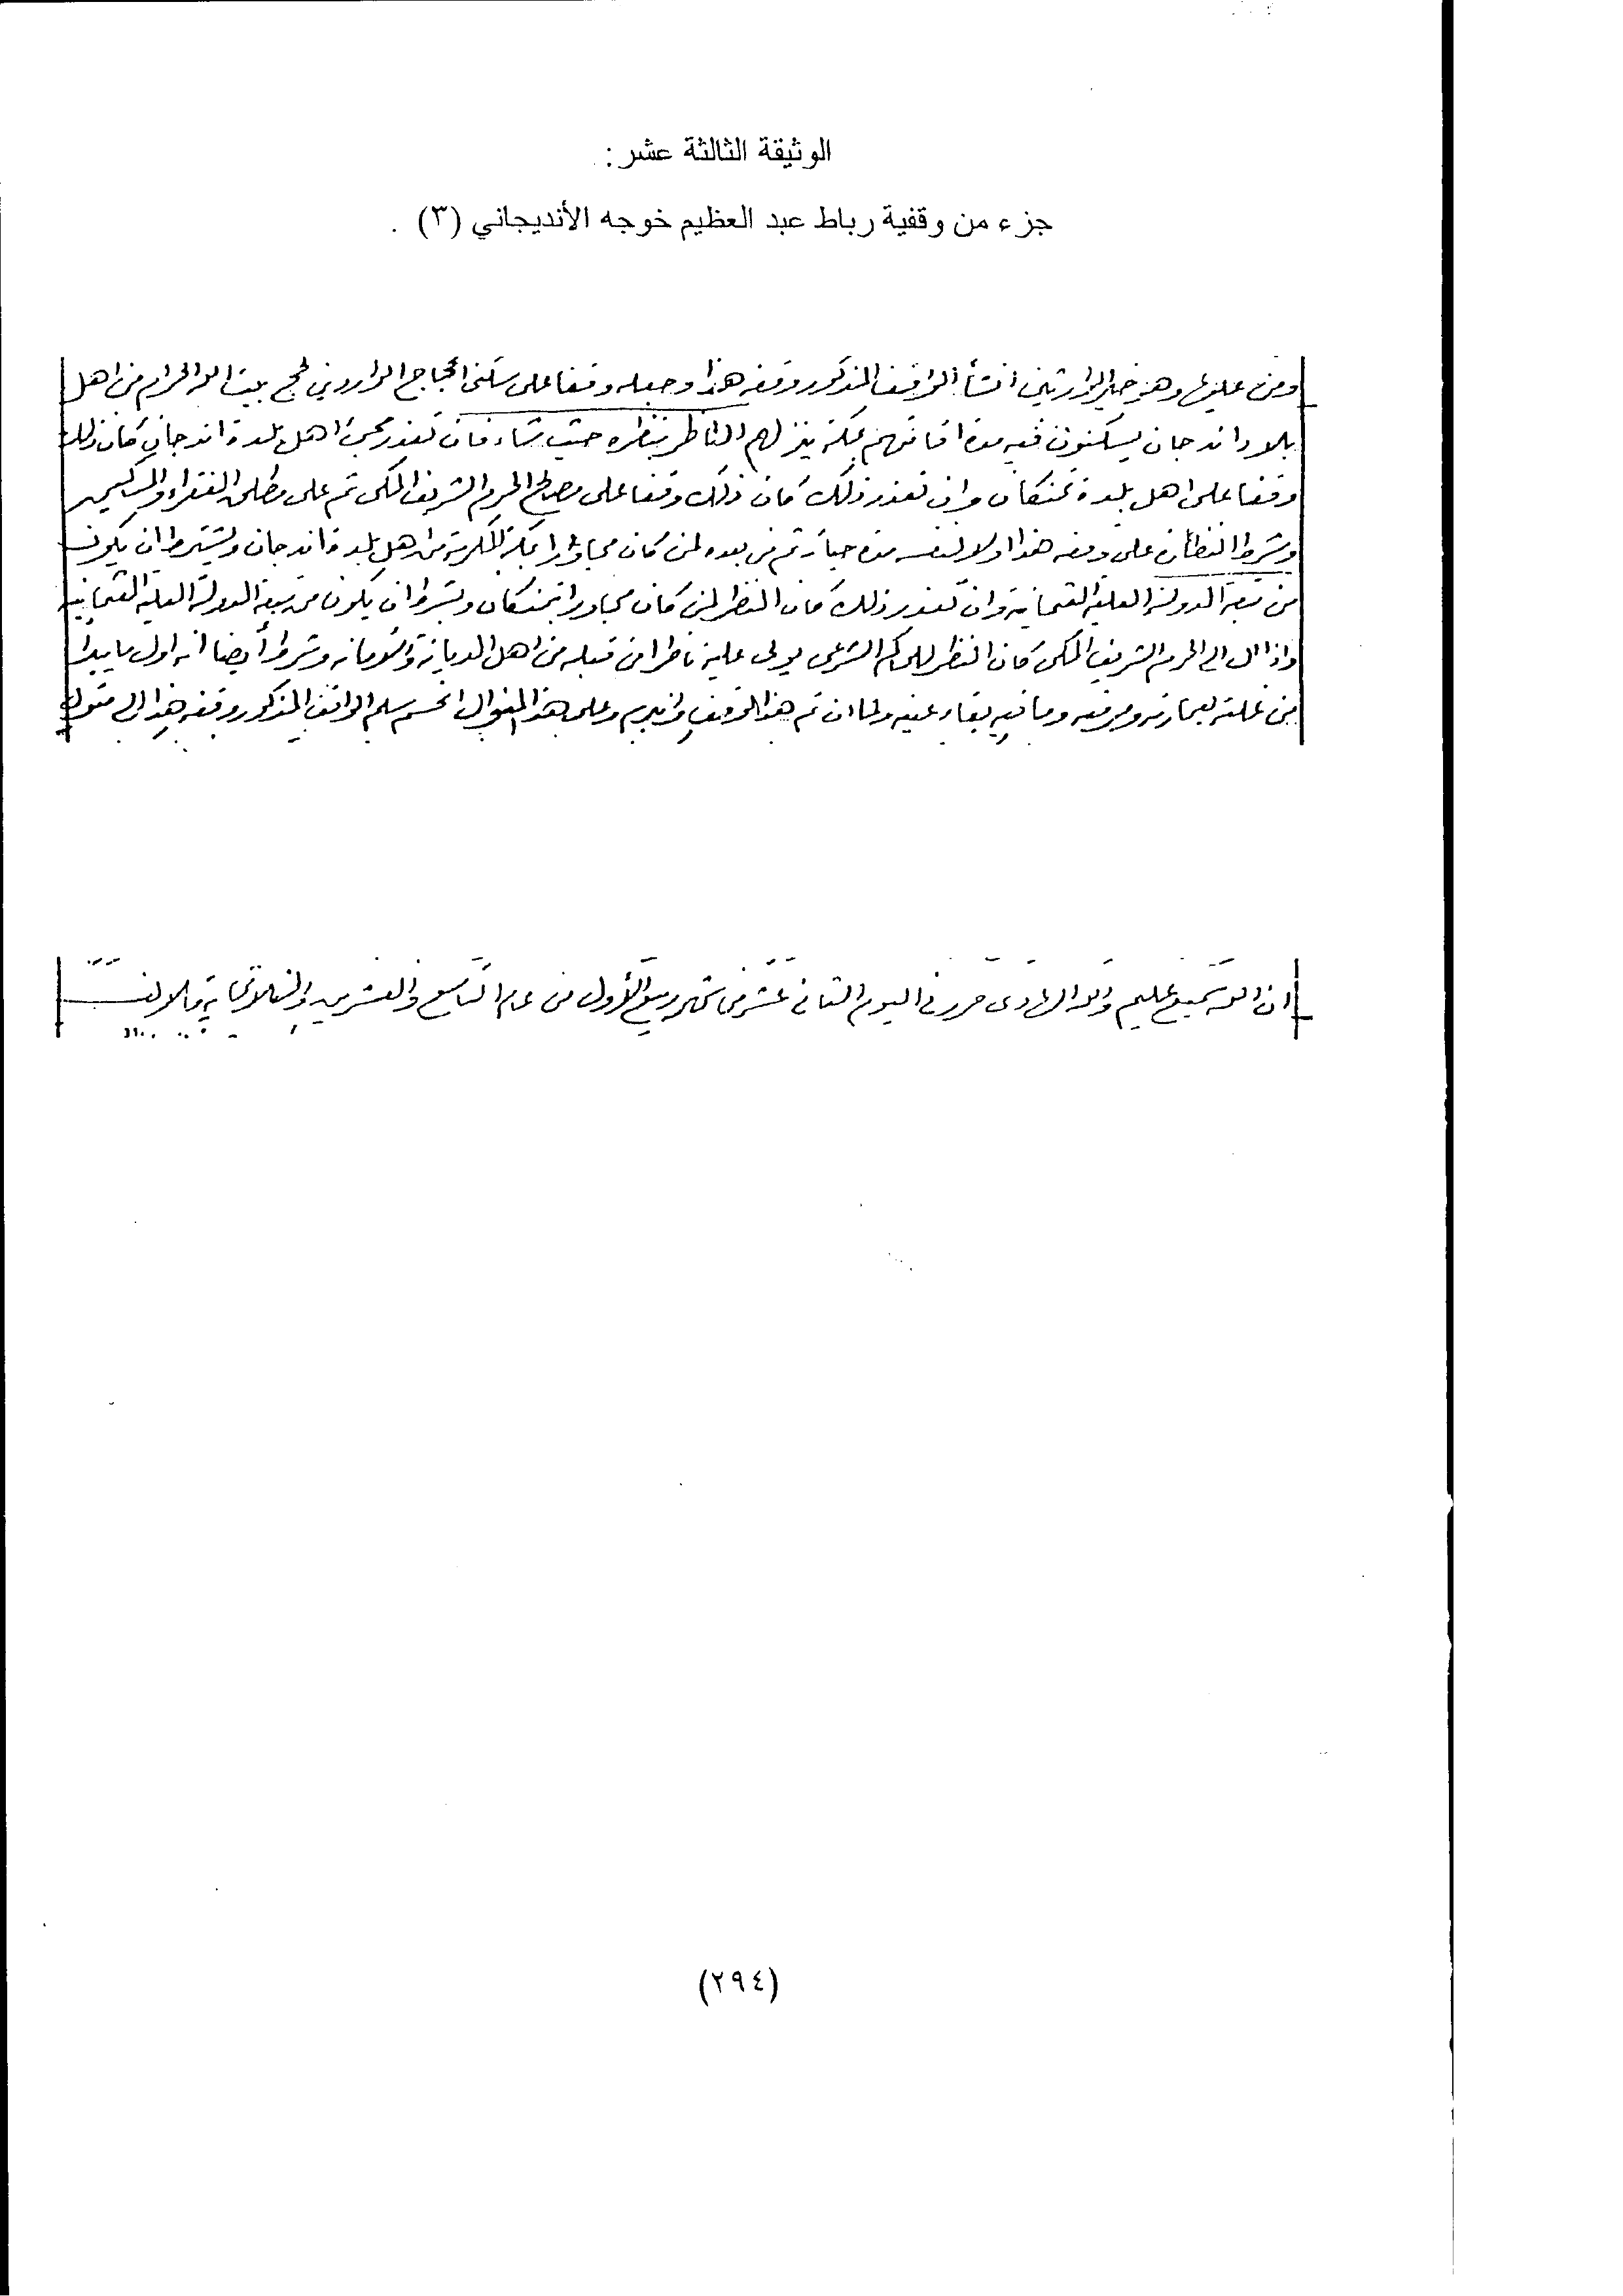 الوثيقة الثالثة عشر :
جزء من وقفية رباط عبد العظيم خوجه الأنديجاني (٣) .
ومن عليها وهو خير الوارثين انشأ الواقف المذكور وقفه هذا وجعله وقفا على سكنى الحجاج الواردين لحج بيت الله الحرام من اهل
بلاد اندجان يسكنون فيه مدة اقامتهم بمكة ينزلهم الناظر بنظره حيث شاء فان تعذر مجئ اهل بلدة اندجان كان ذلك
وقفا على اهل بلدة نمنكان وان تعذر ذلك كان ذلك وقفا على مصالح الحرم الشريف المكى ثم على مطلق الفقراء والمساكين
وشرط النظارة على وقفه هذا اولا لنفسه مدة حياته ثم من بعده لمن كان مجاورا بمكة المكرمة من اهل بلدة اندجان ويشترط ان يكون
من تبعة الدولة العلية العثمانية وان تعذر ذلك كان النظر لمن كان مجاورا بنمنكان وبشرط ان يكون من تبعة الدولة العلية العثمانية
واذا ال الى الحرم الشريف المكى كان النظر للحاكم الشرعى يولى عليه ناظرا من قبله من اهل الديانة والامانه وشرط أيضا انه اول ما يبدا
من غلته بعمارته ومرمته وما فيه بقاء عينه ولما ان تم هذا الوقف وانبرم وعلى هذا المنوال انحسم سلم الواقف المذكور وقفه هذا الى متول
ان الله سميع عليم والله الهادى حرر فى اليوم الثانى عشر من شهر ربيع الأول من عام التاسع والعشرين والثلاثماية والالف
(٢٩٤)